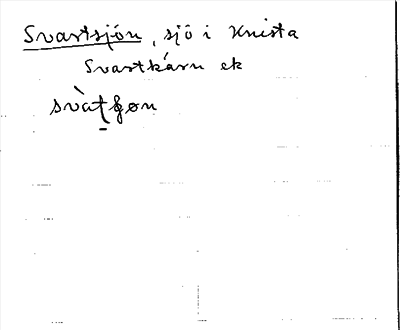 Svartsjön, sjö i Knista
Svartkärn ek